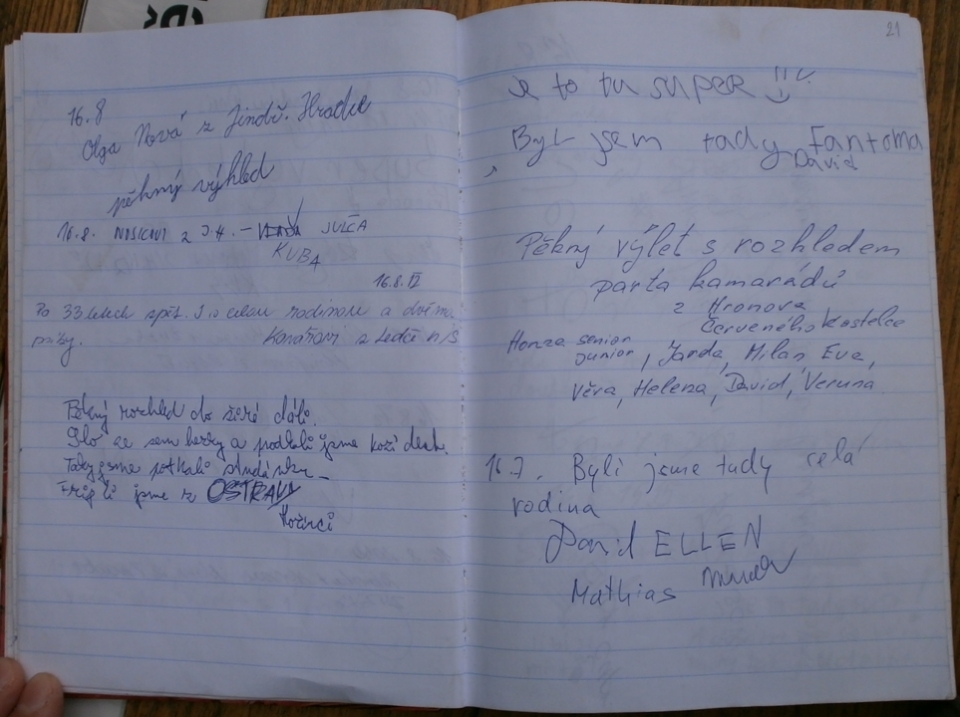 16.8
Olga Nová z Jindř. Hradce
pěkný výhled
16.8. NOSKOVI z J.H. – JULČA
KUBA
16.8.
Po 33 letech opět. S celou rodinou a dvěma
z Ledče n/S
Pěkný rozhled do širé dáli.
Šlo se sem hezky a potkali jsme kozí
Taky jsme potkali studánku
jsme z OSTRAVY
21
Je to tu super !!
Byl jsem tady Fantoma
David
Pěkný výlet s rozhledem
parta kamarádů
z Hronova
Červeného Kostelce
Honza senior
Junior, Jarda, Milan, Eva,
Věra, Helena, David, Veruna
16.7. Byli jsme tady celá
rodina
David ELLEN
Mathias